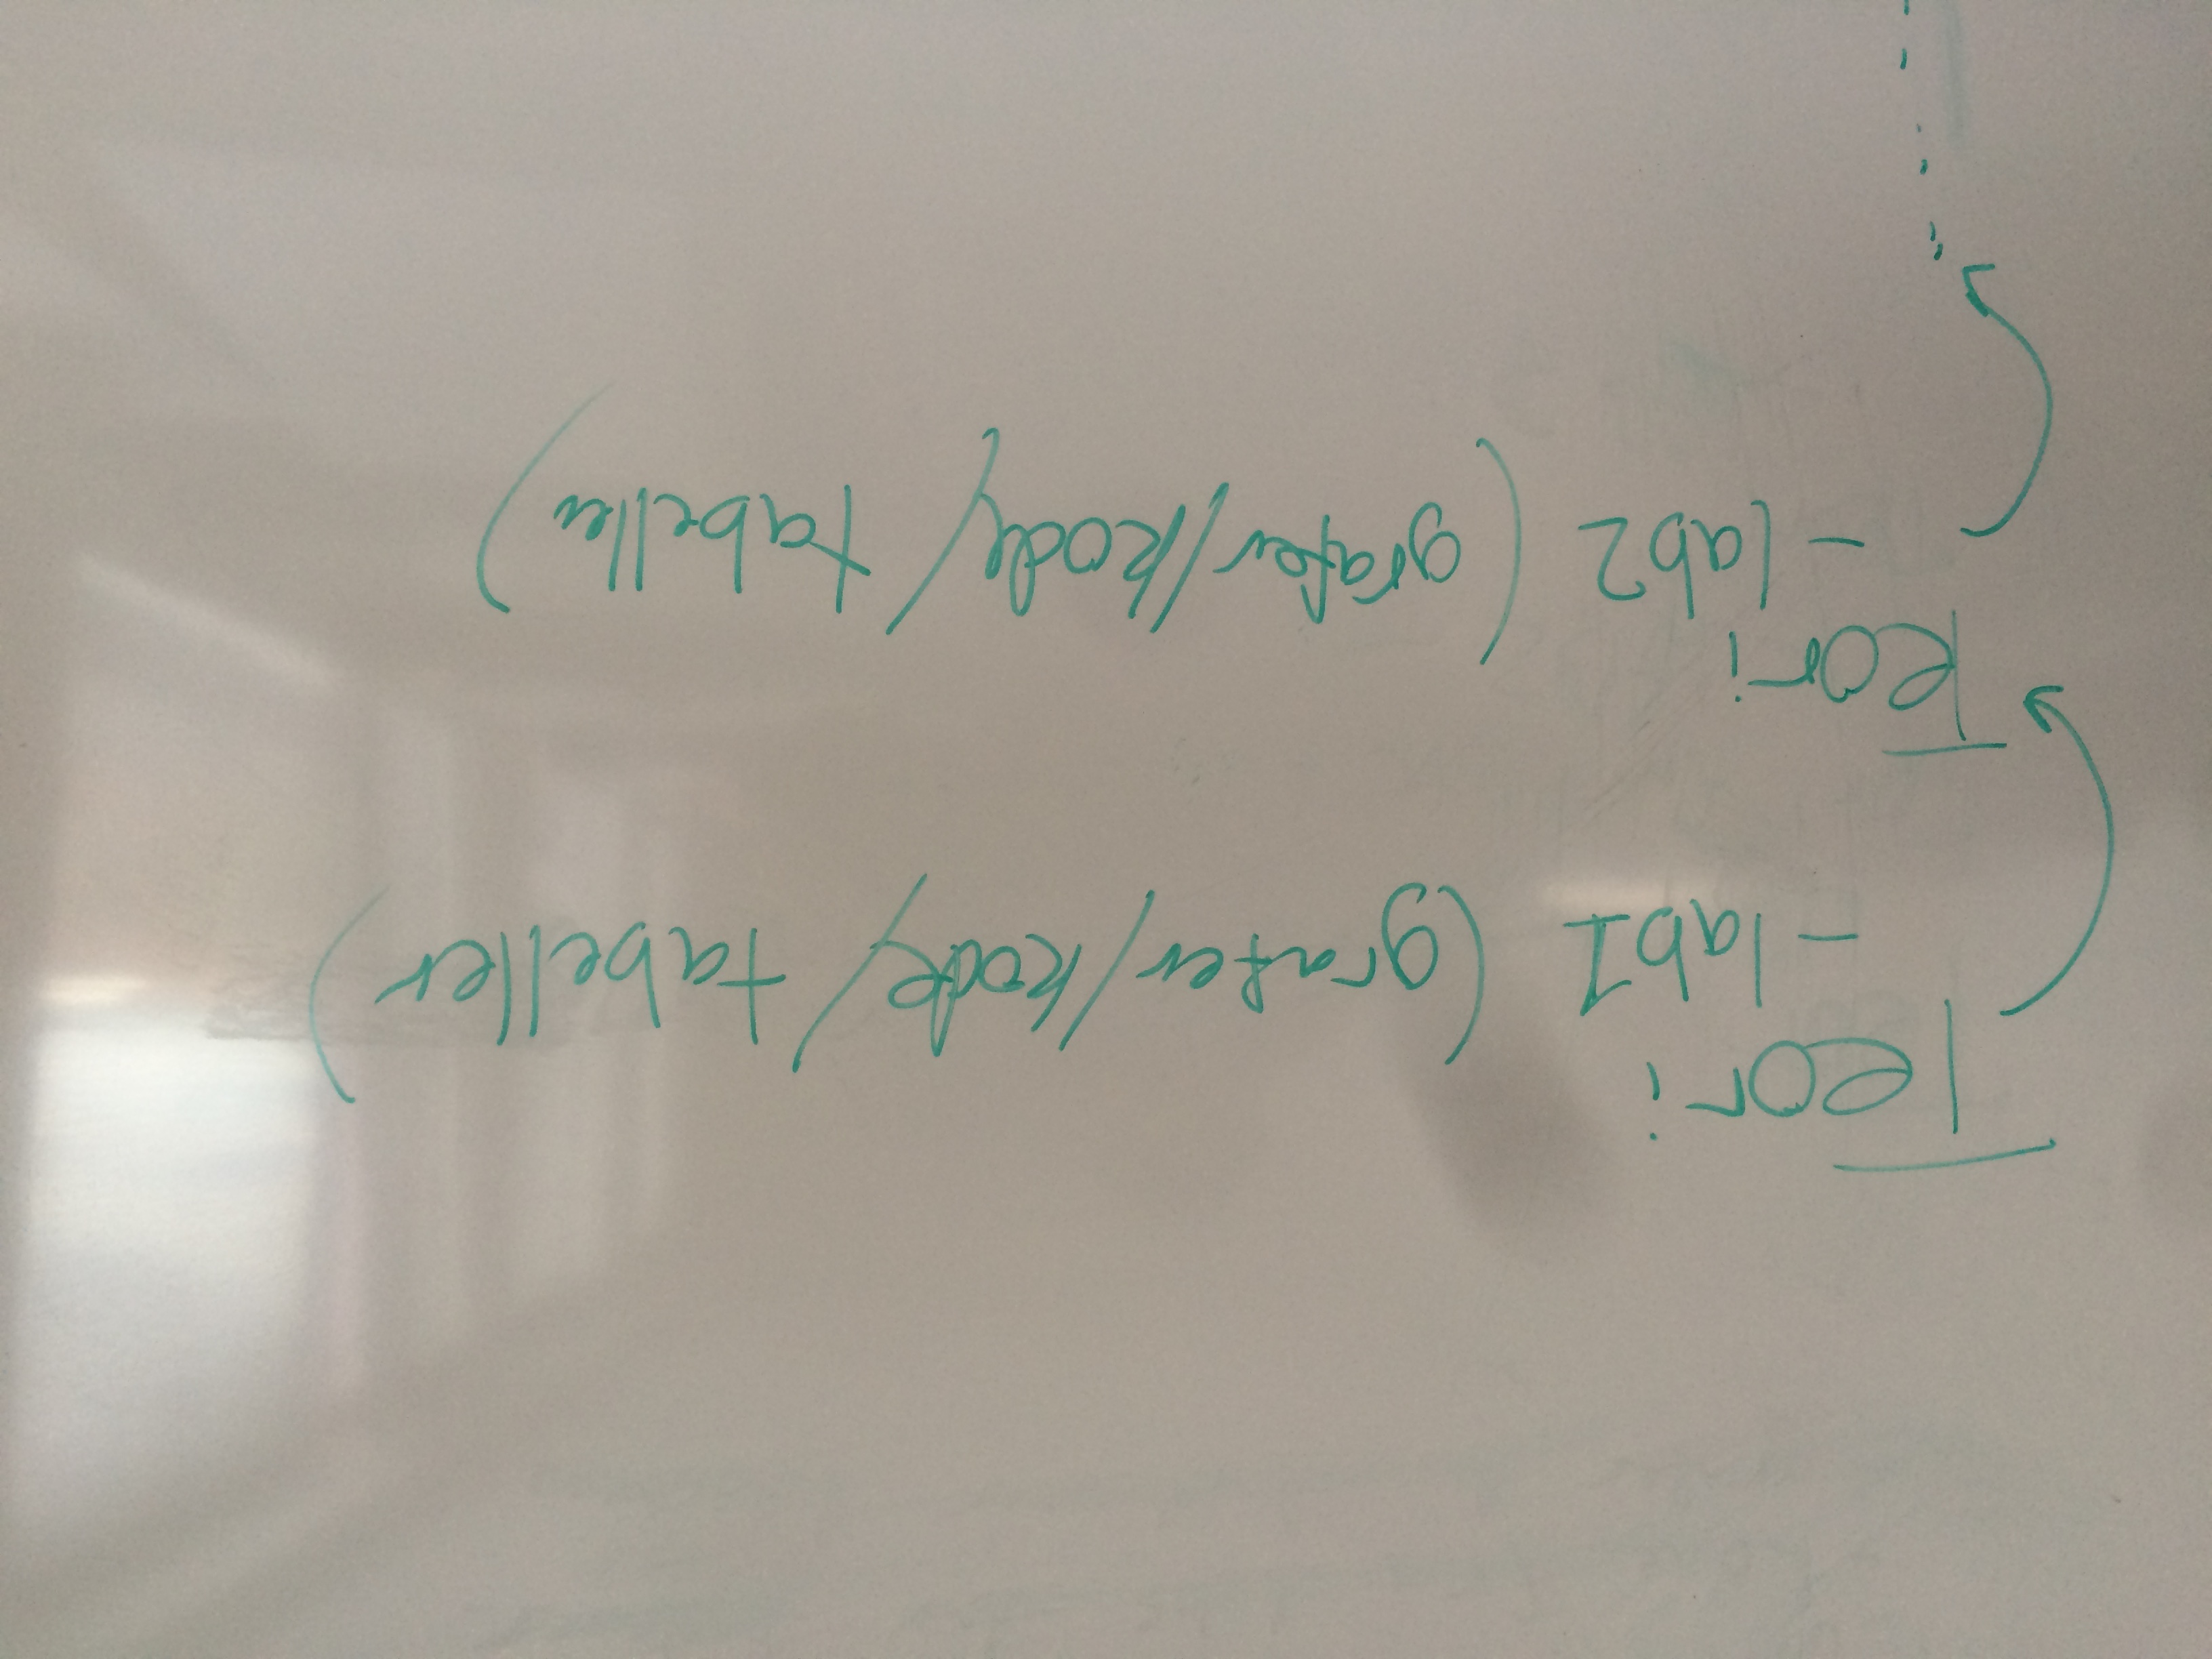 Teori
-lab1 (grafer/kode/tabeller)
Teori
-lab2 (grafer/kode/tabeller)